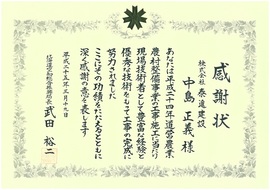 感謝状
株式会社 泰進建設
中島正義様
あなたは平成二十四年道営農業
農村整備事業の工事施工に当たり
現場技術者として豊富な経験と
優秀な技術をもって工事の完成に
努力されました
ここにその功績をたたえるとともに
深く感謝の意を表します
平成二十五年三月十九日
武田裕二